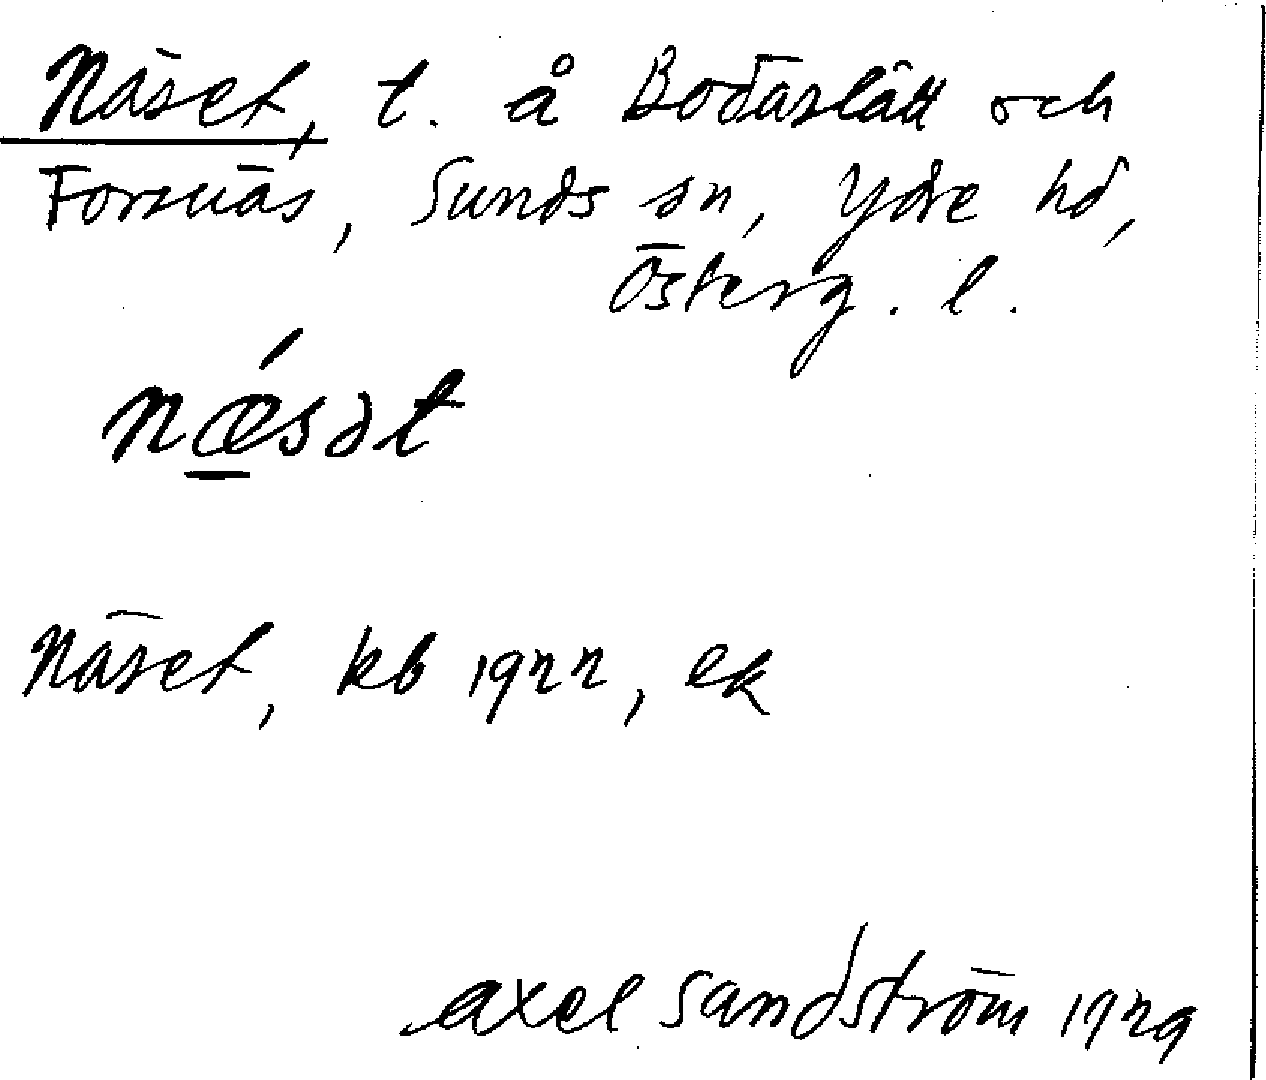 Näset, t. å Bodaslätt och
Forsnäs, Sunds sn, Ydre hd,
Österg. l.
nǽsət
Näset, kb 1922, ek
Axel Sandström 1929